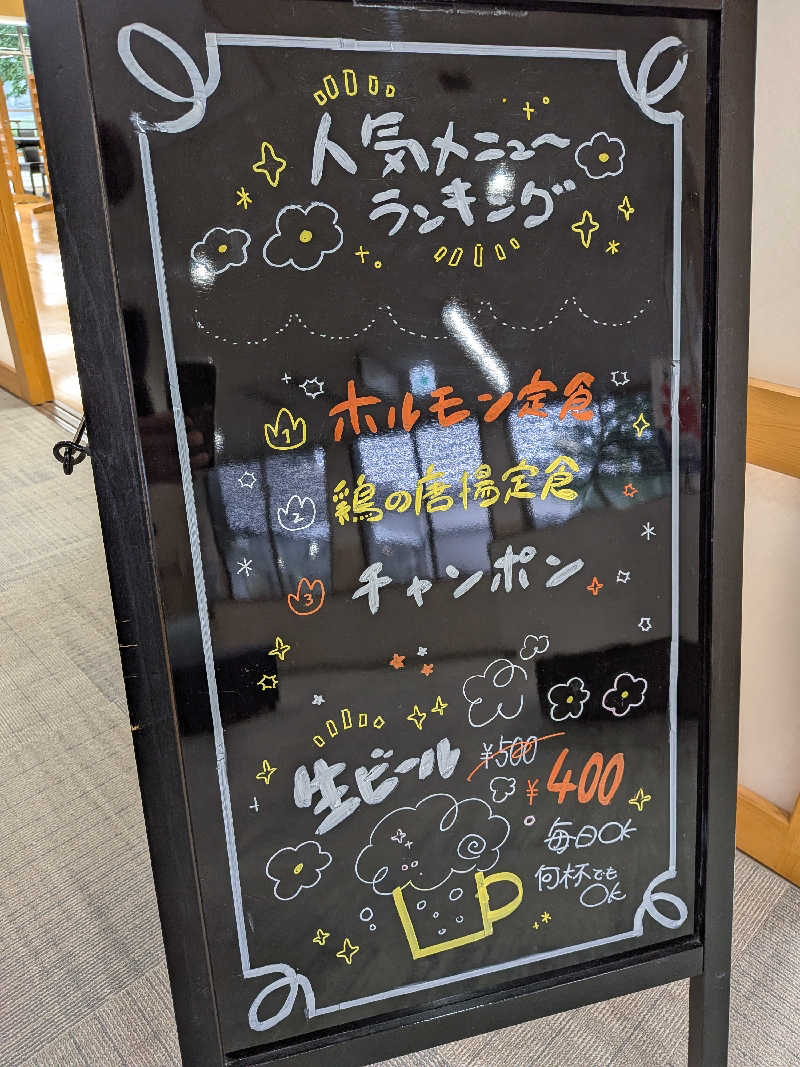 人気メニュー
ランキング
1 ホルモン定食
2 鶏の唐揚定食
3 チャンポン
生ビール ¥500
¥400
毎日OK
何杯でも
OK